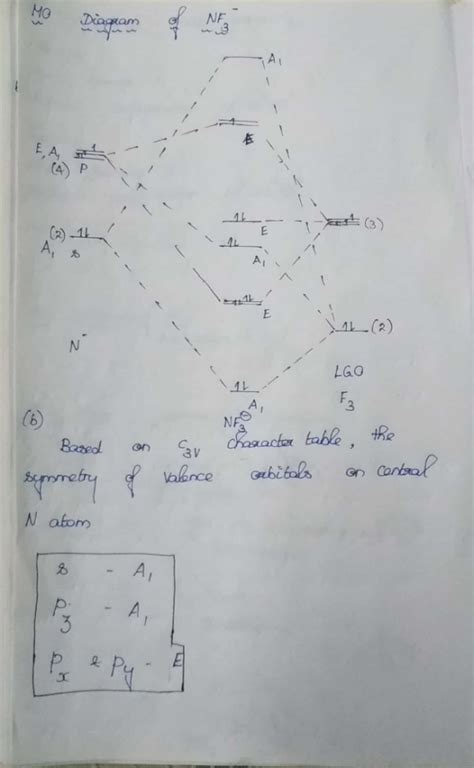 MO Diagram of NF₃⁻
A₁
E
E, A₁
(4) P
(2)
A₁ s
E
(3)
A₁
E
(2)
N⁻
LGO
F₃
A₁
NF₃⊖
(b)
Based on C₃V character table, the
symmetry of valence orbitals on central
N atom
s - A₁
P₃ - A₁
Pₓ & Py - E